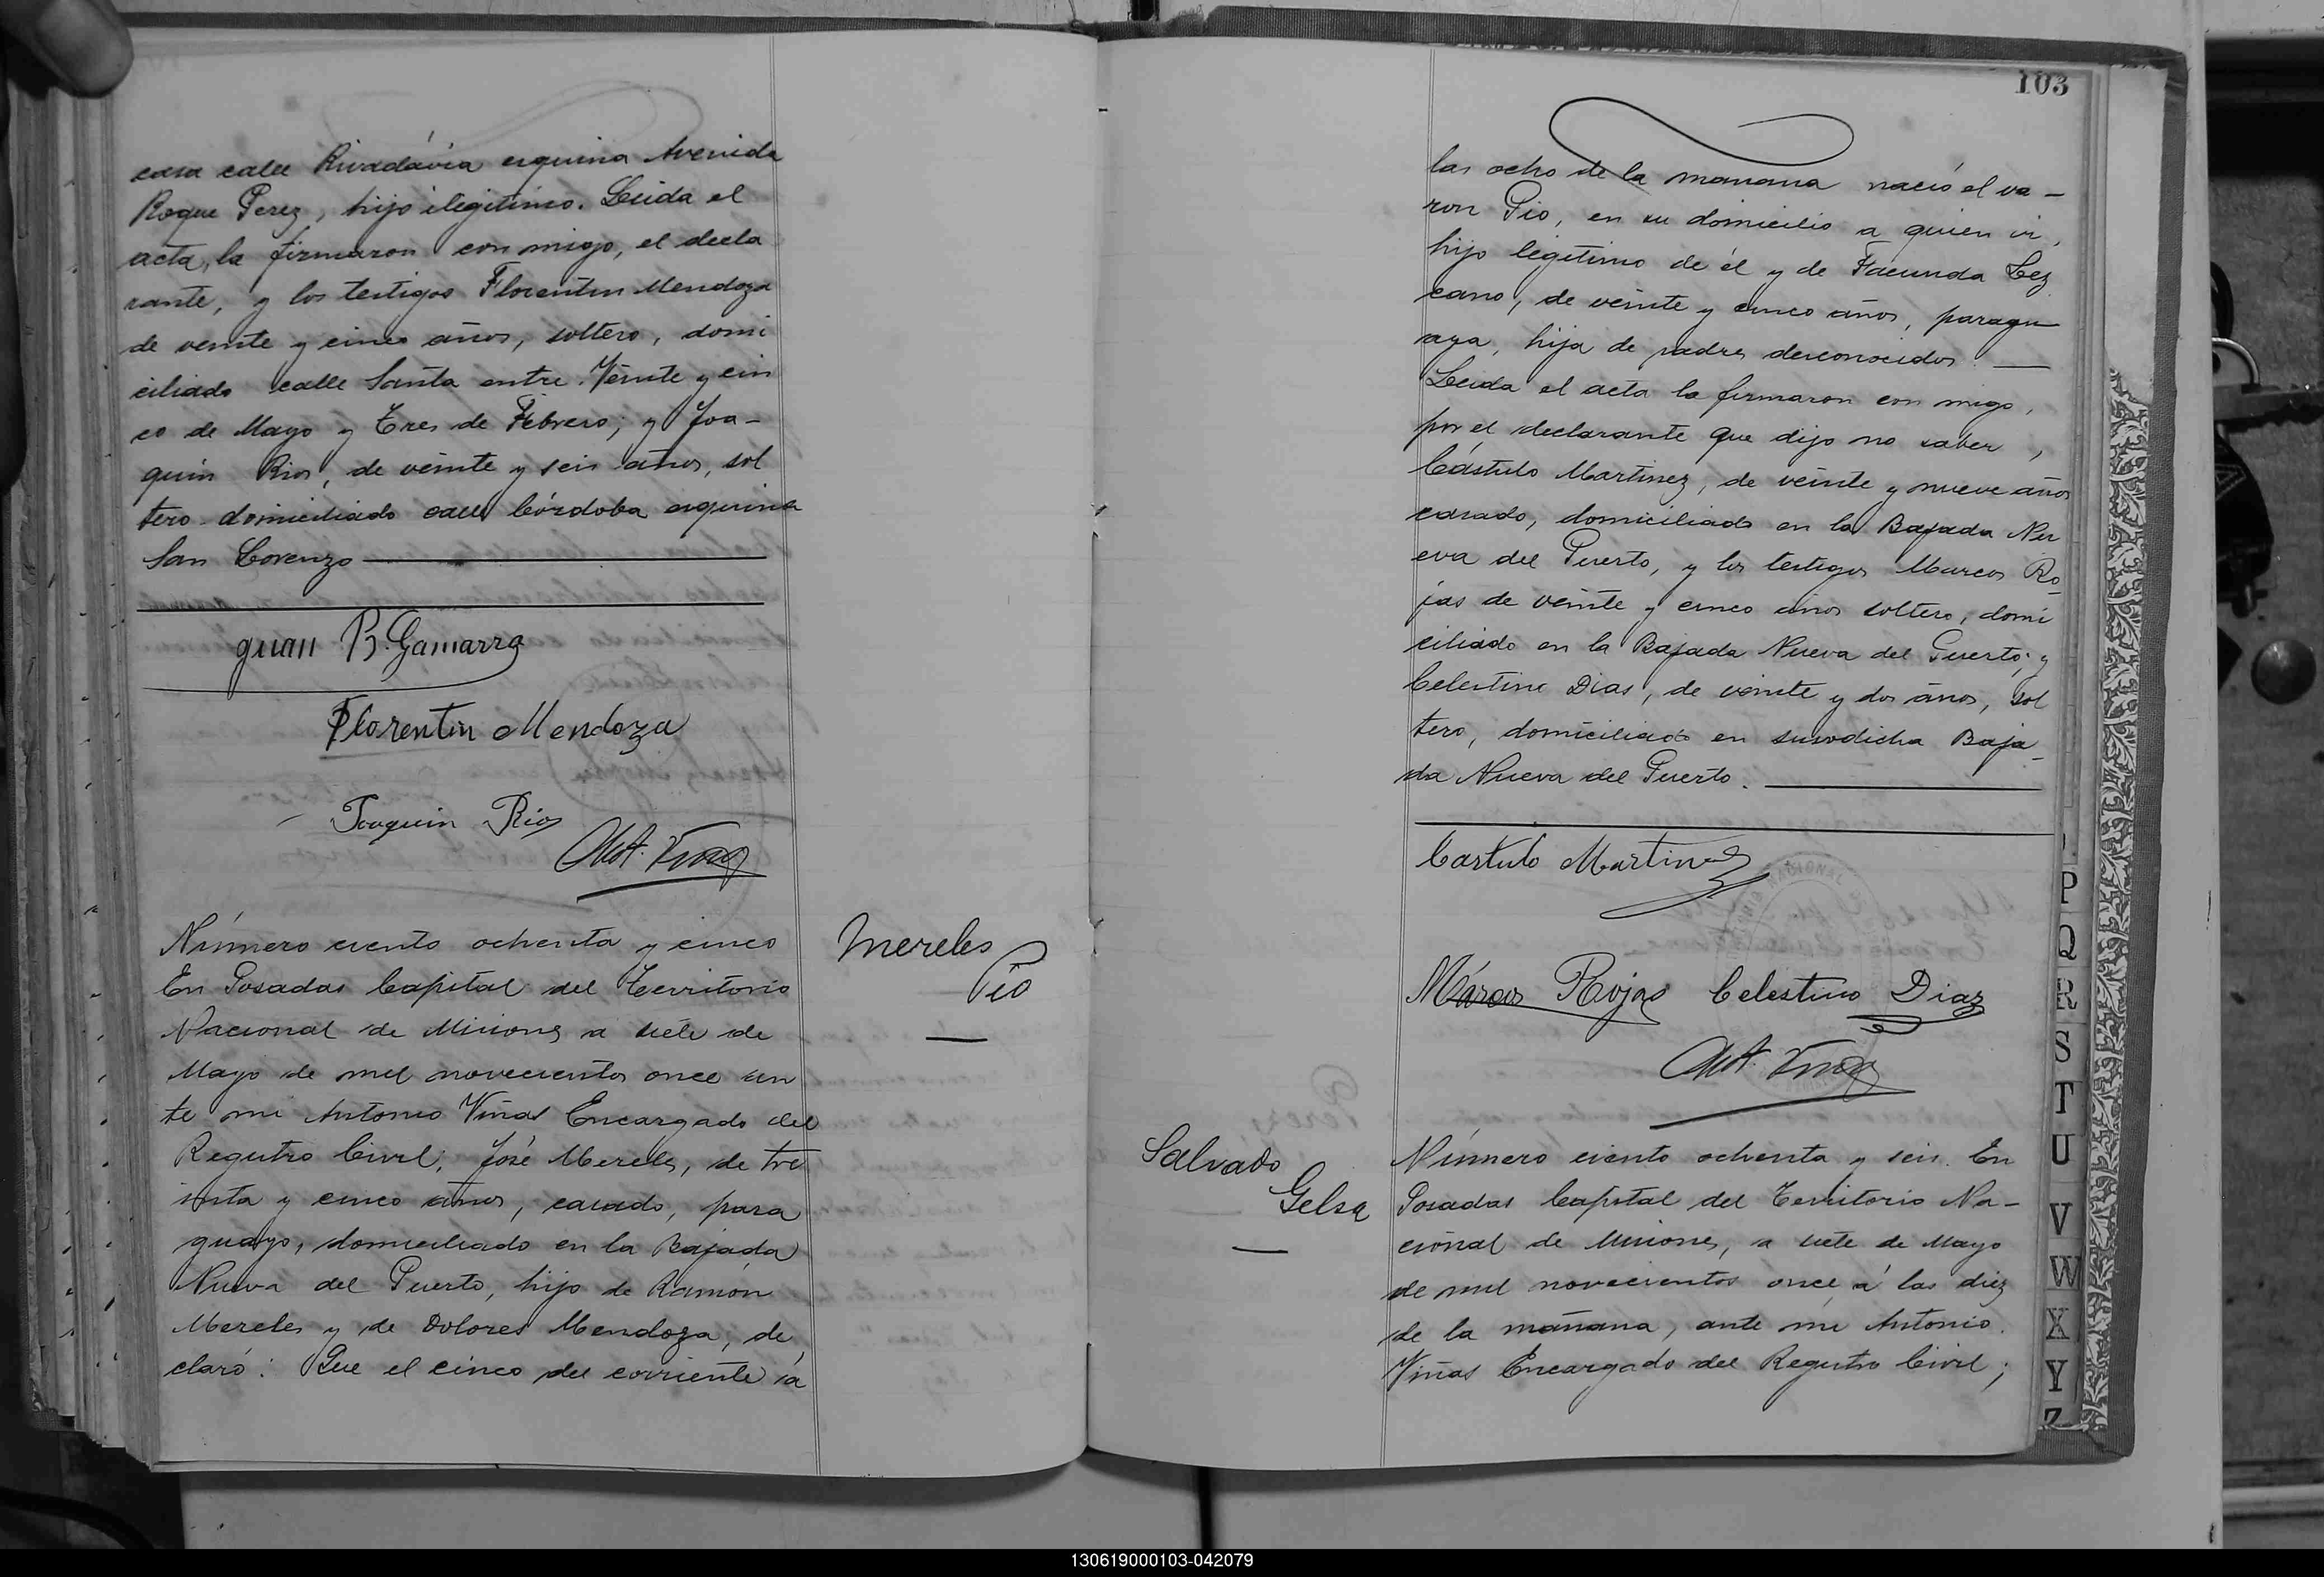 casa calle Rivadávia esquina Avenida
Roque Perez, hijo ilegitimo. Leida el
acta, la firmaron con migo, el decla
rante, y los testigos Florentin Mendoza
de veinte y cinco años, soltero, domi
ciliado calle Santa entre Veinte y cin
co de Mayo y Tres de Febrero; y Joa-
quin Rios, de veinte y seis años, sol
tero domiciliado calle Córdoba esquina
San Lorenzo
Juan B. Gamarra
Florentin Mendoza
Joaquin Rios
Número ciento ochenta y cinco
En Posadas Capital del Territorio
Nacional de Misiones a siete de
Mayo de mil novecientos once an
te mi Antonio Viñas Encargado del
Registro Civil; José Mereles, de tre
inta y cinco años, casado, para
guayo, domiciliado en la Bajada
Nueva del Puerto, hijo de Ramón
Mereles y de Dolores Mendoza, de
claró: Que el cinco del corriente á
Mereles
Pio
103
las ocho de la manana nació el va-
ron Pio, en su domicilio a quien vi,
hijo legitimo de él y de Facunda Lez
cano, de veinte y cinco años, paragu
aya, hija de padres desconocidos.
Leida el acta la firmaron con migo,
por el declarante que dijo no saber,
Cástulo Martinez, de veinte y nueve años
casado, domiciliado en la Bajada Nu
eva del Puerto, y los testigos Marcos Ro
jas de veinte y cinco años soltero, domi
ciliado en la Bajada Nueva del Puerto; y
Celestino Dias, de veinte y dos años, sol
tero, domiciliado en susodicha Baja
da Nueva del Puerto.
Castulo Martinez
Márcos Rojas Celestino Diaz
Salvado
Gelsa
Número ciento ochenta y seis. En
Posadas Capital del Territorio Na-
cional de Misiones, a siete de Mayo
de mil novecientos once á las diez
de la mañana, ante mi Antonio
Viñas Encargado del Registro Civil;
P
Q
R
S
T
U
V
W
X
Y
Z
130619000103-042079